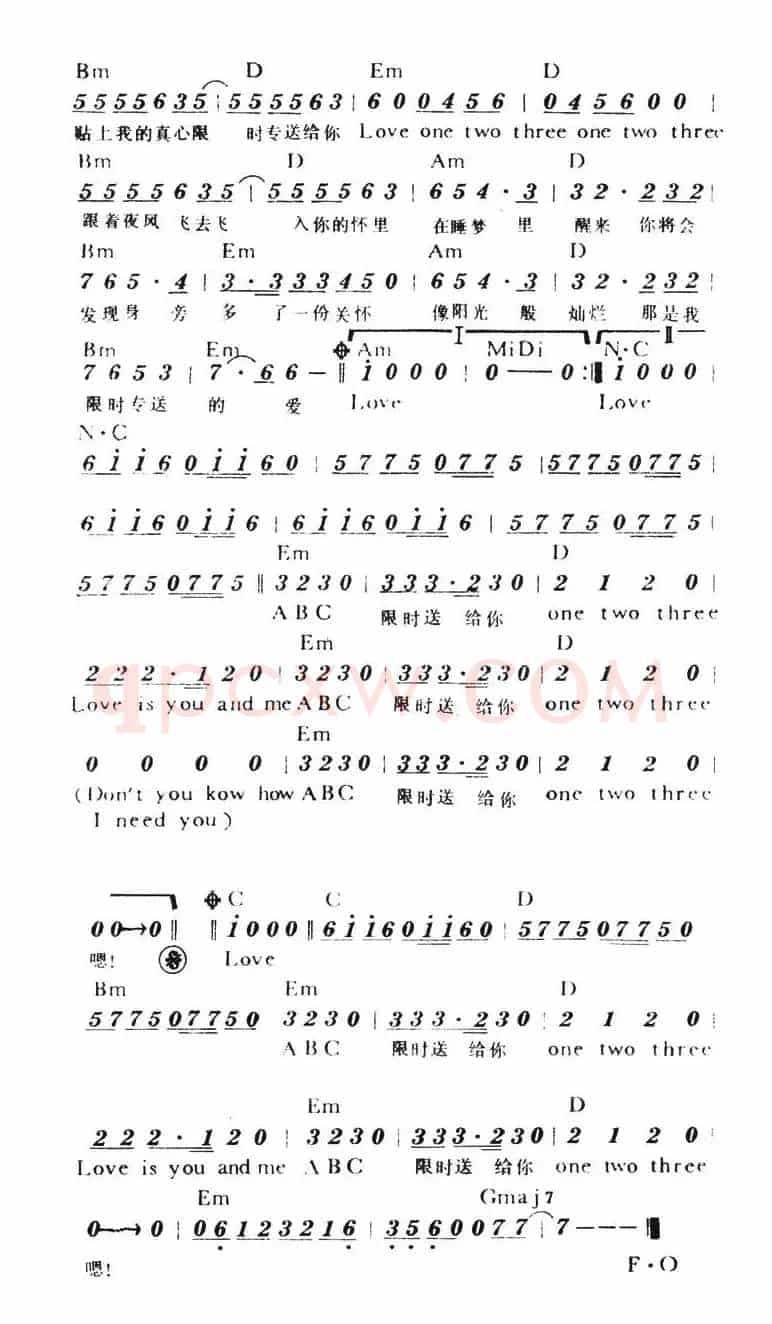 Bm D Em D
5555635 | 555563 | 600456 | 045600 |
贴上我的真心限 时专送给你 Love one two three one two three
Bm D Am D
5555635 | 555563 | 654·3 | 32·232
跟着夜风 飞去飞 入你的怀里 在睡梦 里 醒来 你将会
Bm Em Am D
765·4 | 3·333450 | 654·3 | 32·232
发现身 旁 多 了一份关怀 像阳光 般 灿烂 那是我
I II
Bm Em Am MiDi N·C
7653 | 7·66— ‖ i000 | 0——0 :‖ i000 |
限时专送 的 爱 Love Love
N·C
6ii60ii60 | 57750775 | 57750775 |
6ii60ii6 | 6ii60ii6 | 57750775 |
Em D
57750775 ‖ 3230 | 333·230 | 2 1 2 0 |
ABC 限时送 给你 one two three
Em D
222·120 | 3230 | 333·230 | 2 1 2 0 |
Love is you and me ABC 限时送 给你 one two three
qpcxw.com
Em
0 0 0 0 | 3230 | 333·230 | 2 1 2 0 |
(Don't you kow how ABC 限时送 给你 one two three
I need you)
C C D
00→0 ‖ ‖ i000 ‖ 6ii60ii60 | 577507750
嗯! Love
Bm Em D
577507750 3230 | 333·230 | 2 1 2 0 |
ABC 限时送 给你 one two three
Em D
222·120 | 3230 | 333·230 | 2 1 2 0 |
Love is you and me ABC 限时送 给你 one two three
Em Gmaj7
0—→0 | 06123216 | 3560077 | 7——— ‖
嗯! F·O